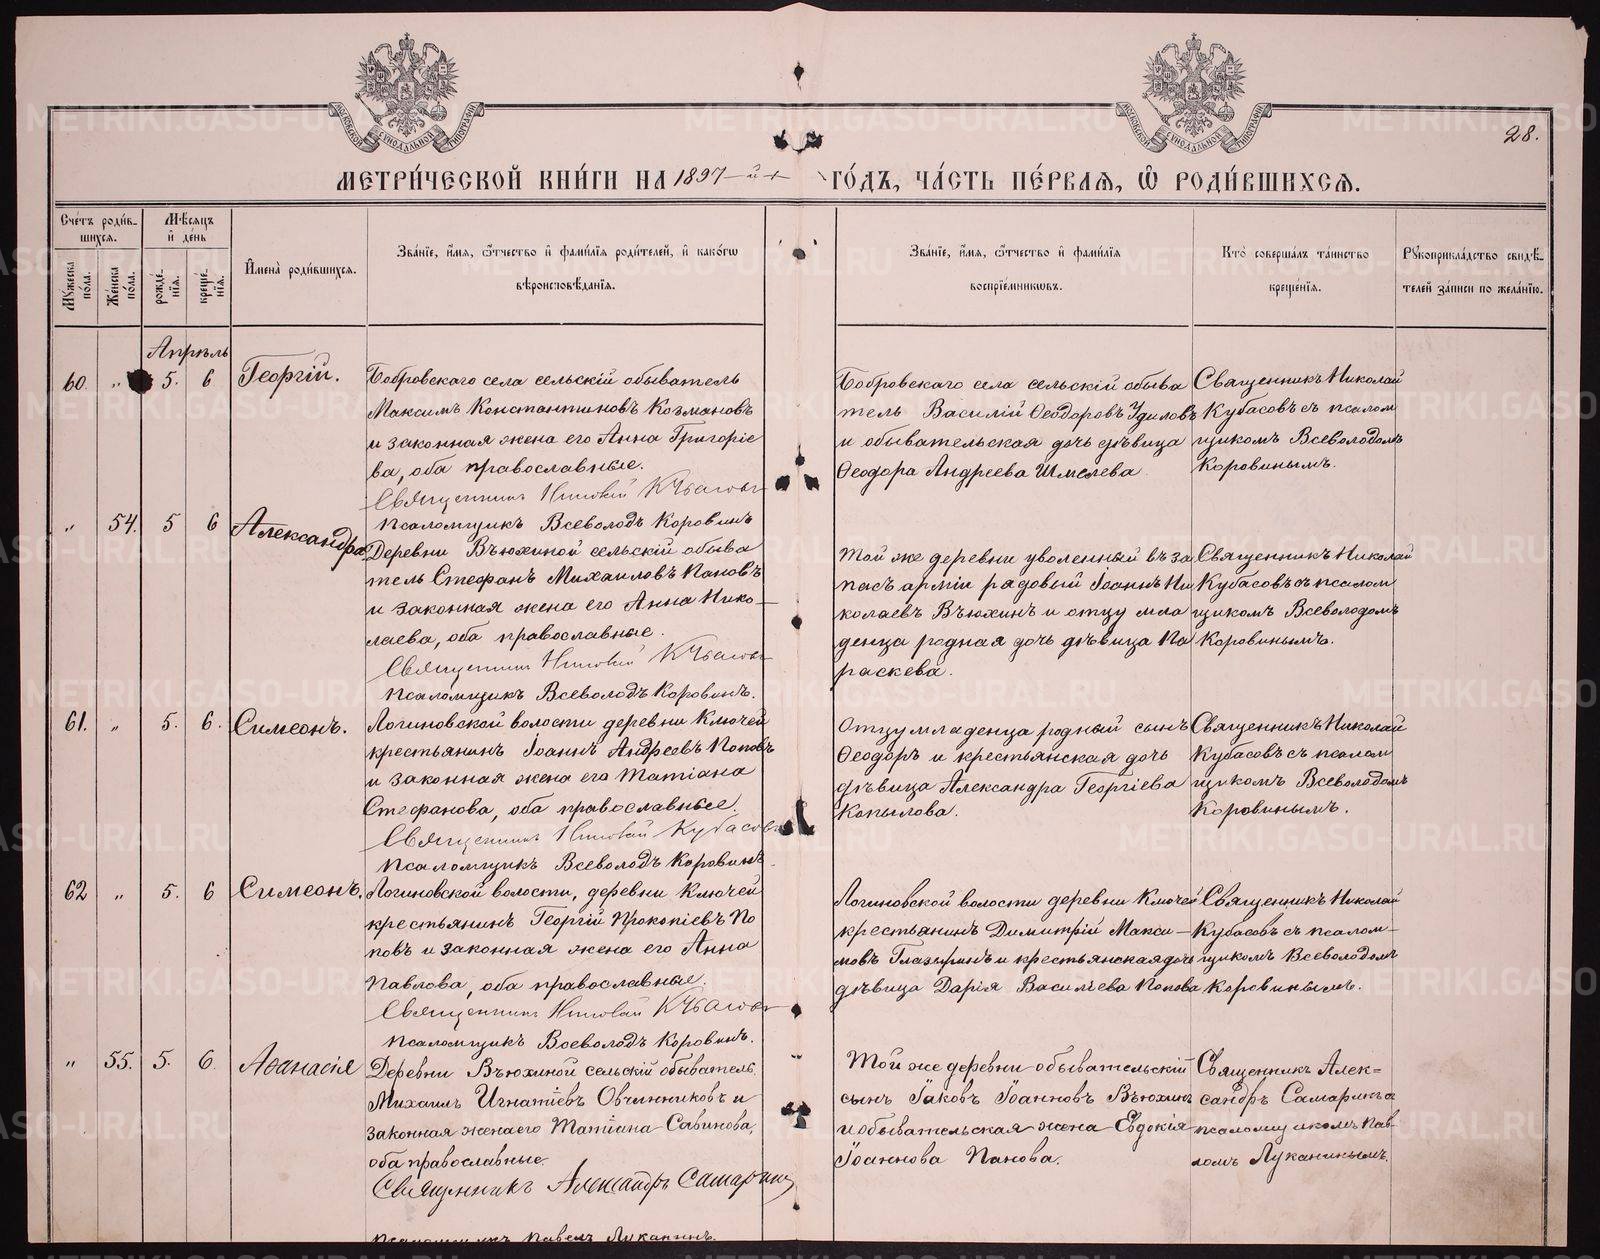 28.
МЕТРИ́ЧЕСКОЙ КНИ́ГИ НА 1897-й ГО́ДЪ, ЧА́СТЬ ПЕ́РВАѦ, Ѡ҆ РОДИ́ВШИХСѦ.
Сче́тъ роди́в-
шихсѧ.
Му́жеска по́ла.
Же́нска по́ла.
Мѣ́сѧцъ
и҆ де́нь
рожде́-
нїѧ.
креще́-
нїѧ.
И҆мена̀ роди́вшихсѧ.
Зва́нїе, и҆́мѧ, ѻ҆́тчество и҆ фами́лїѧ роди́телей, и҆ како́гѡ
вѣроисповѣ́данїѧ.
Зва́нїе, и҆́мѧ, ѻ҆́тчество и҆ фами́лїѧ
воспрїе́мниковъ.
Кто̀ соверша́лъ та́инство
креще́нїѧ.
Рꙋкоприкла́дство свидѣ́-
телей за́писи по жела́нїю.
Апрѣль
60. „ 5. 6 Георгій.
Бобровскаго села сельскій обыватель
Максимъ Константиновъ Козмановъ
и законная жена его Анна Григоріе
ва, оба православные.
Священникъ Николай Кубасовъ
Псаломщикъ Всеволодъ Коровинъ
Бобровскаго села сельскій обыва
тель Василій Ѳеодоровъ Удиловъ
и обывательская дочь дѣвица
Ѳеодора Андреева Шмелева
Священникъ Николай
Кубасовъ съ псалом
щикомъ Всеволодомъ
Коровинымъ.
„ 54. 5 6 Александра
Деревни Въюхиной сельскій обыва
тель Стефанъ Михаиловъ Пановъ
и законная жена его Анна Нико-
лаева, оба православные.
Священникъ Николай Кубасовъ
Псаломщикъ Всеволодъ Коровинъ.
Той же деревни уволенный въ за
пасъ арміи рядовый Іоаннъ Ни
колаевъ Въюхинъ и отцу мла
денца родная дочь дѣвица Па
раскева.
Священникъ Николай
Кубасовъ съ псалом
щикомъ Всеволодомъ
Коровинымъ.
61. „ 5. 6. Симеонъ.
Логиновской волости деревни Ключей
крестьянинъ Іоаннъ Андреевъ Поповъ
и законная жена его Татіана
Стефанова, оба православные.
Священникъ Николай Кубасовъ
Псаломщикъ Всеволодъ Коровинъ.
Отцу младенца родный сынъ
Ѳеодоръ и крестьянская дочь
дѣвица Александра Георгіева
Копылова.
Священникъ Николай
Кубасовъ съ псалом
щикомъ Всеволодомъ
Коровинымъ.
62 „ 5. 6 Симеонъ.
Логиновской волости, деревни Ключей
крестьянинъ Георгій Прокопіевъ По
повъ и законная жена его Анна
Павлова, оба православные.
Священникъ Николай Кубасовъ
Псаломщикъ Всеволодъ Коровинъ.
Логиновской волости деревни Ключей
крестьянинъ Димитрій Макси-
мовъ Глазыринъ и крестьянская дочь
дѣвица Дарія Василіева Попова
Священникъ Николай
Кубасовъ съ псалом-
щикомъ Всеволодомъ
Коровинымъ.
„ 55. 5. 6. Аѳанасія
Деревни Въюхиной сельскій обыватель
Михаилъ Игнатіевъ Овчинниковъ и
законная жена его Татіана Савинова,
оба православные.
Священникъ Александръ Самаринъ
Псаломщикъ Павелъ Луканинъ.
Той же деревни обывательскій
сынъ Іаковъ Іоанновъ Въюхинъ
и обывательская жена Евдокія
Іоаннова Панова.
Священникъ Алек-
сандръ Самаринъ съ
псаломщикомъ Пав-
ломъ Луканинымъ.
METRIKI.GASO-URAL.RU